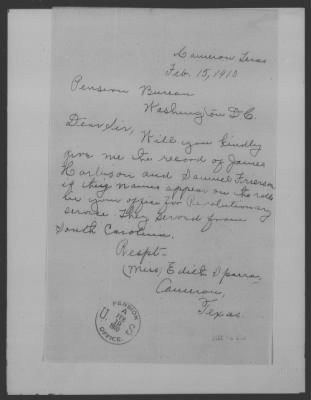 Cameron Texas
Feb. 15, 1910
Pension Bureau
Washington D.C.
Dear Sir, Will you kindly
give me the record of James
Harbison and Samuel Frierson
if they names appear on the rolls
in your office for Revolutionary
service. They served from
South Carolina.
Respt-
(Miss) Edith
Cameron,
Texas.
PENSION
A
FEB
1910
OFFICE.
U. S